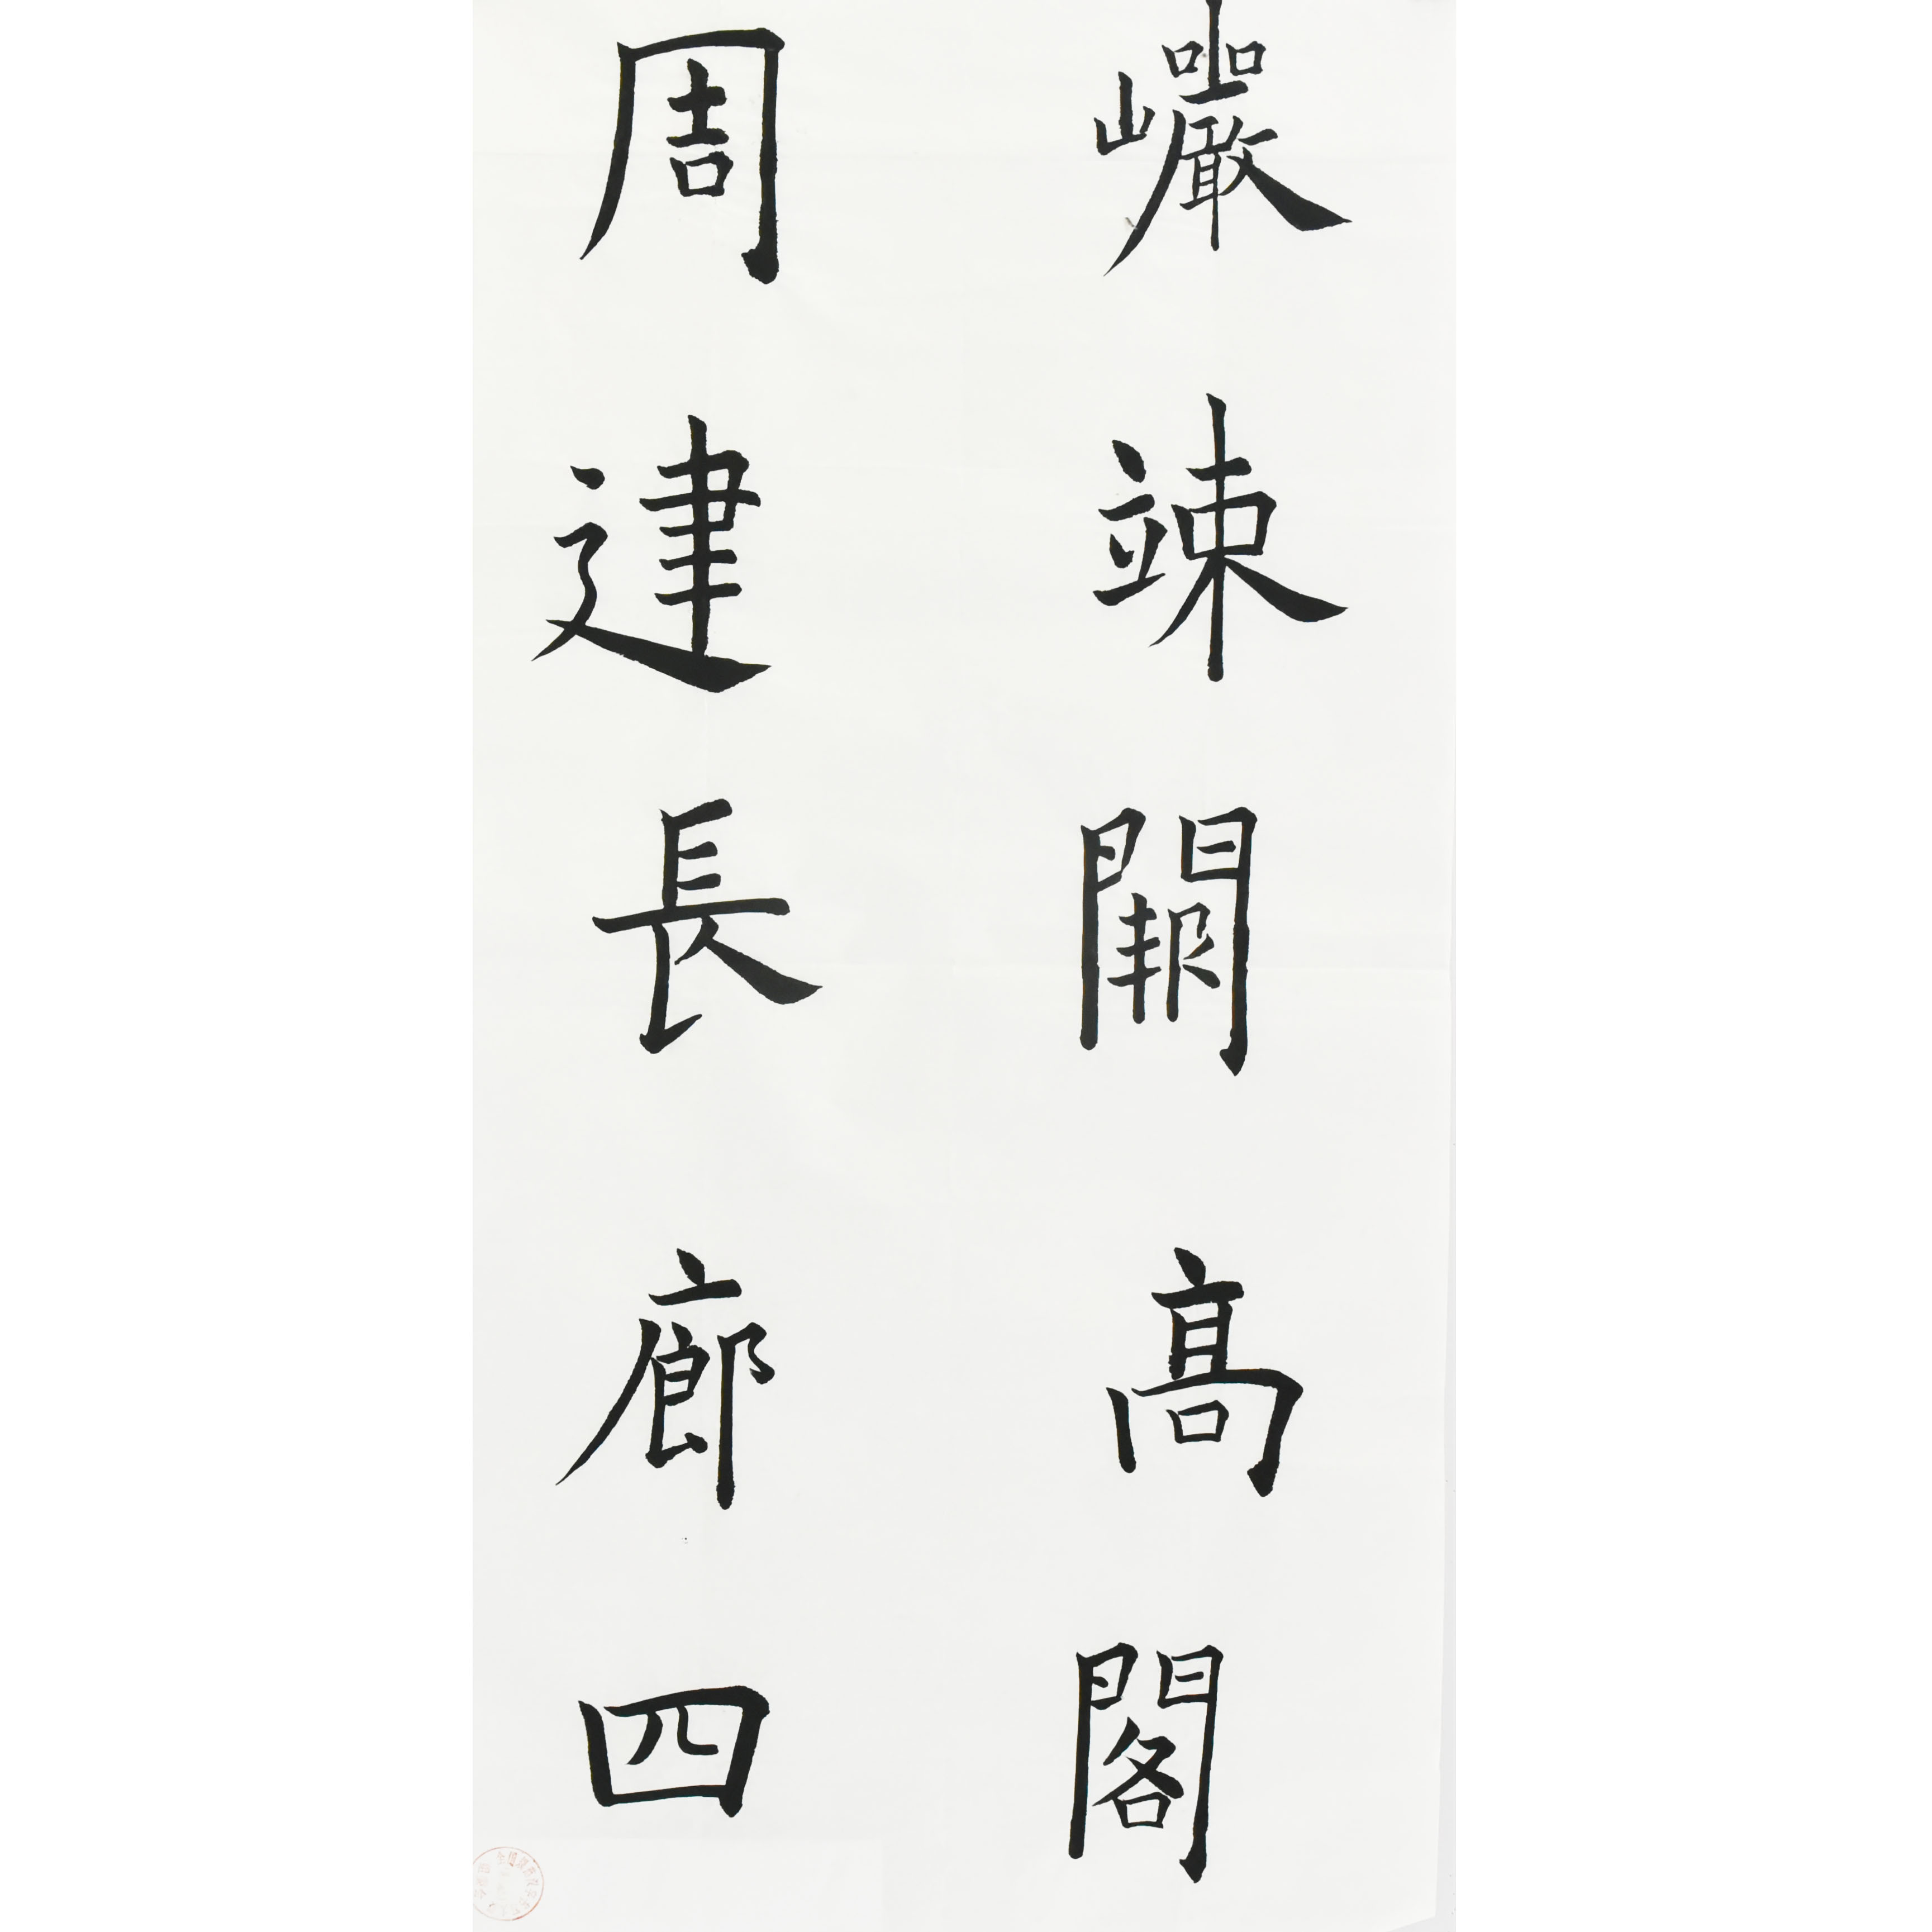 巗竦闕髙閣
周建長廊四